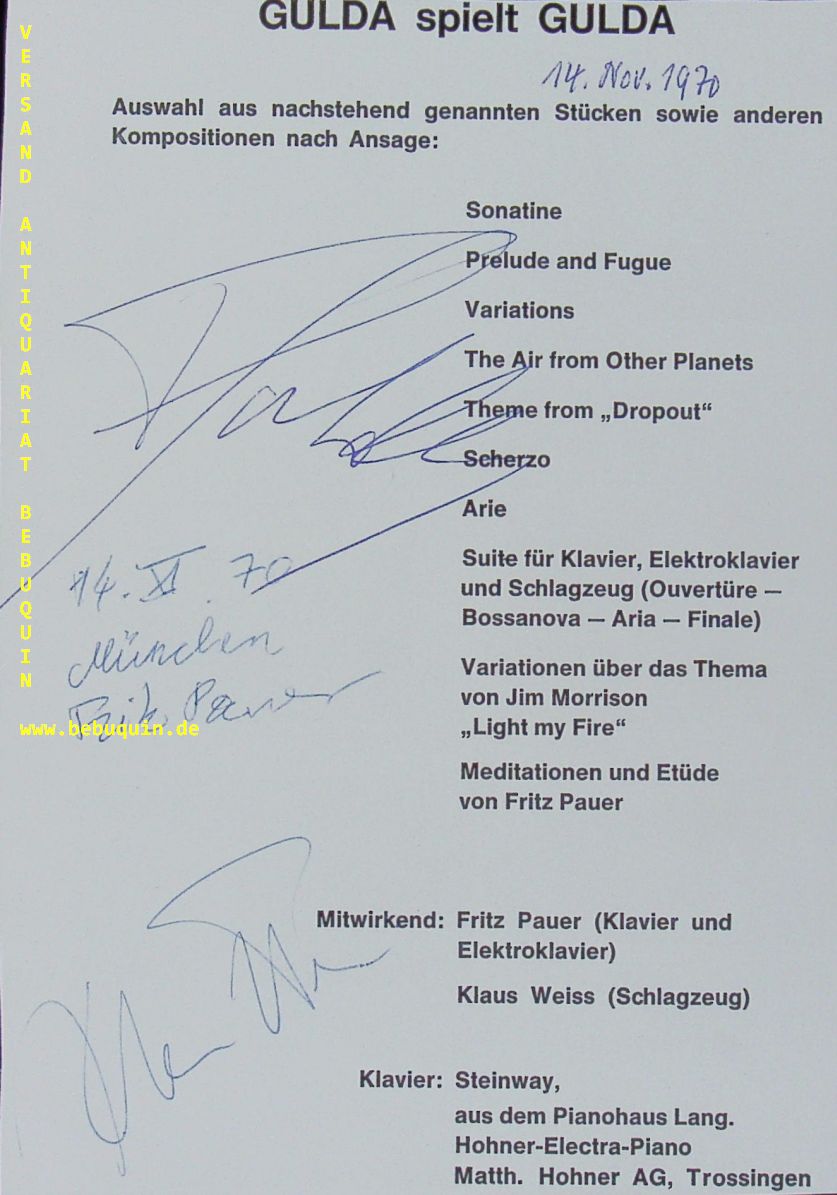 GULDA spielt GULDA
14. Nov. 1970
Auswahl aus nachstehend genannten Stücken sowie anderen
Kompositionen nach Ansage:
Sonatine
Prelude and Fugue
Variations
The Air from Other Planets
Theme from „Dropout“
Scherzo
Arie
Suite für Klavier, Elektroklavier
und Schlagzeug (Ouvertüre —
Bossanova — Aria — Finale)
Variationen über das Thema
von Jim Morrison
„Light my Fire“
Meditationen und Etüde
von Fritz Pauer
14. XI. 70
München
Fritz Pauer
Mitwirkend: Fritz Pauer (Klavier und
Elektroklavier)
Klaus Weiss (Schlagzeug)
Klavier: Steinway,
aus dem Pianohaus Lang.
Hohner-Electra-Piano
Matth. Hohner AG, Trossingen
VERSAND ANTIQUARIAT BEBUQUIN
www.bebuquin.de